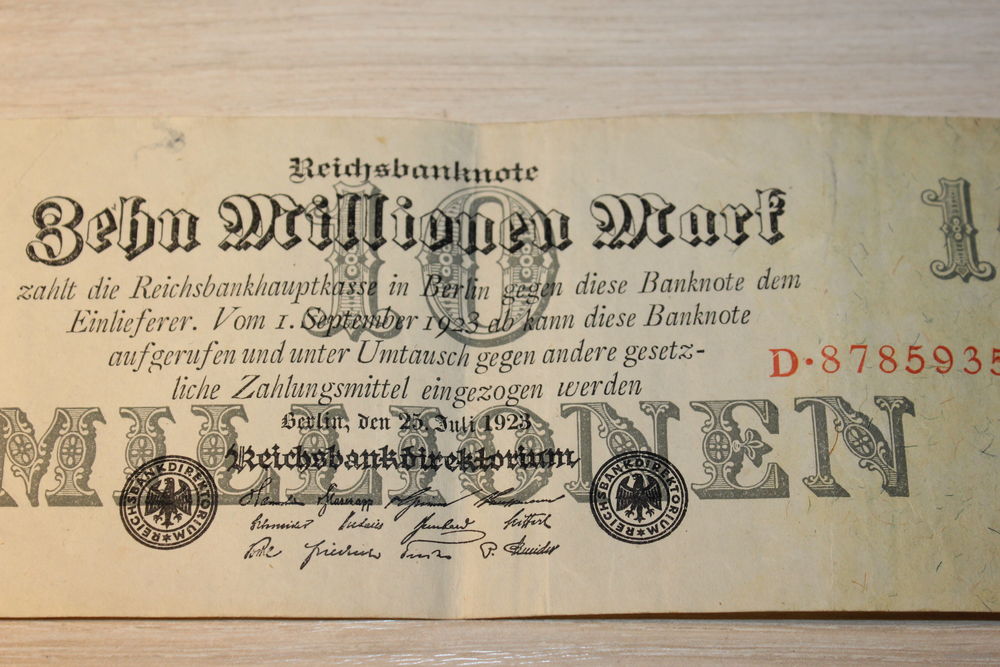 Reichsbanknote
10
Zehn Millionen Mark
zahlt die Reichsbankhauptkasse in Berlin gegen diese Banknote dem
Einlieferer. Vom 1. September 1923 ab kann diese Banknote
aufgerufen und unter Umtausch gegen andere gesetz-
liche Zahlungsmittel eingezogen werden
1
D·8785935
MILLIONEN
Berlin, den 25. Juli 1923
Reichsbankdirektorium
REICHSBANKDIREKTORIUM
REICHSBANKDIREKTORIUM